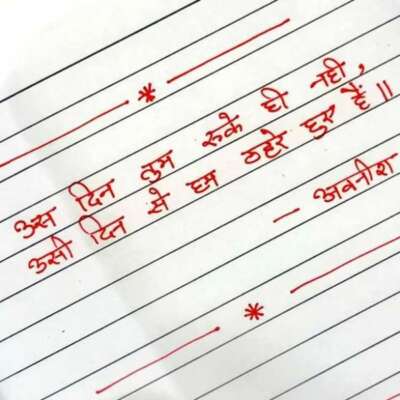 उस दिन तुम रुके ही नही,
उसी दिन से हम ठहरे हुए हैं॥
— अवनीश